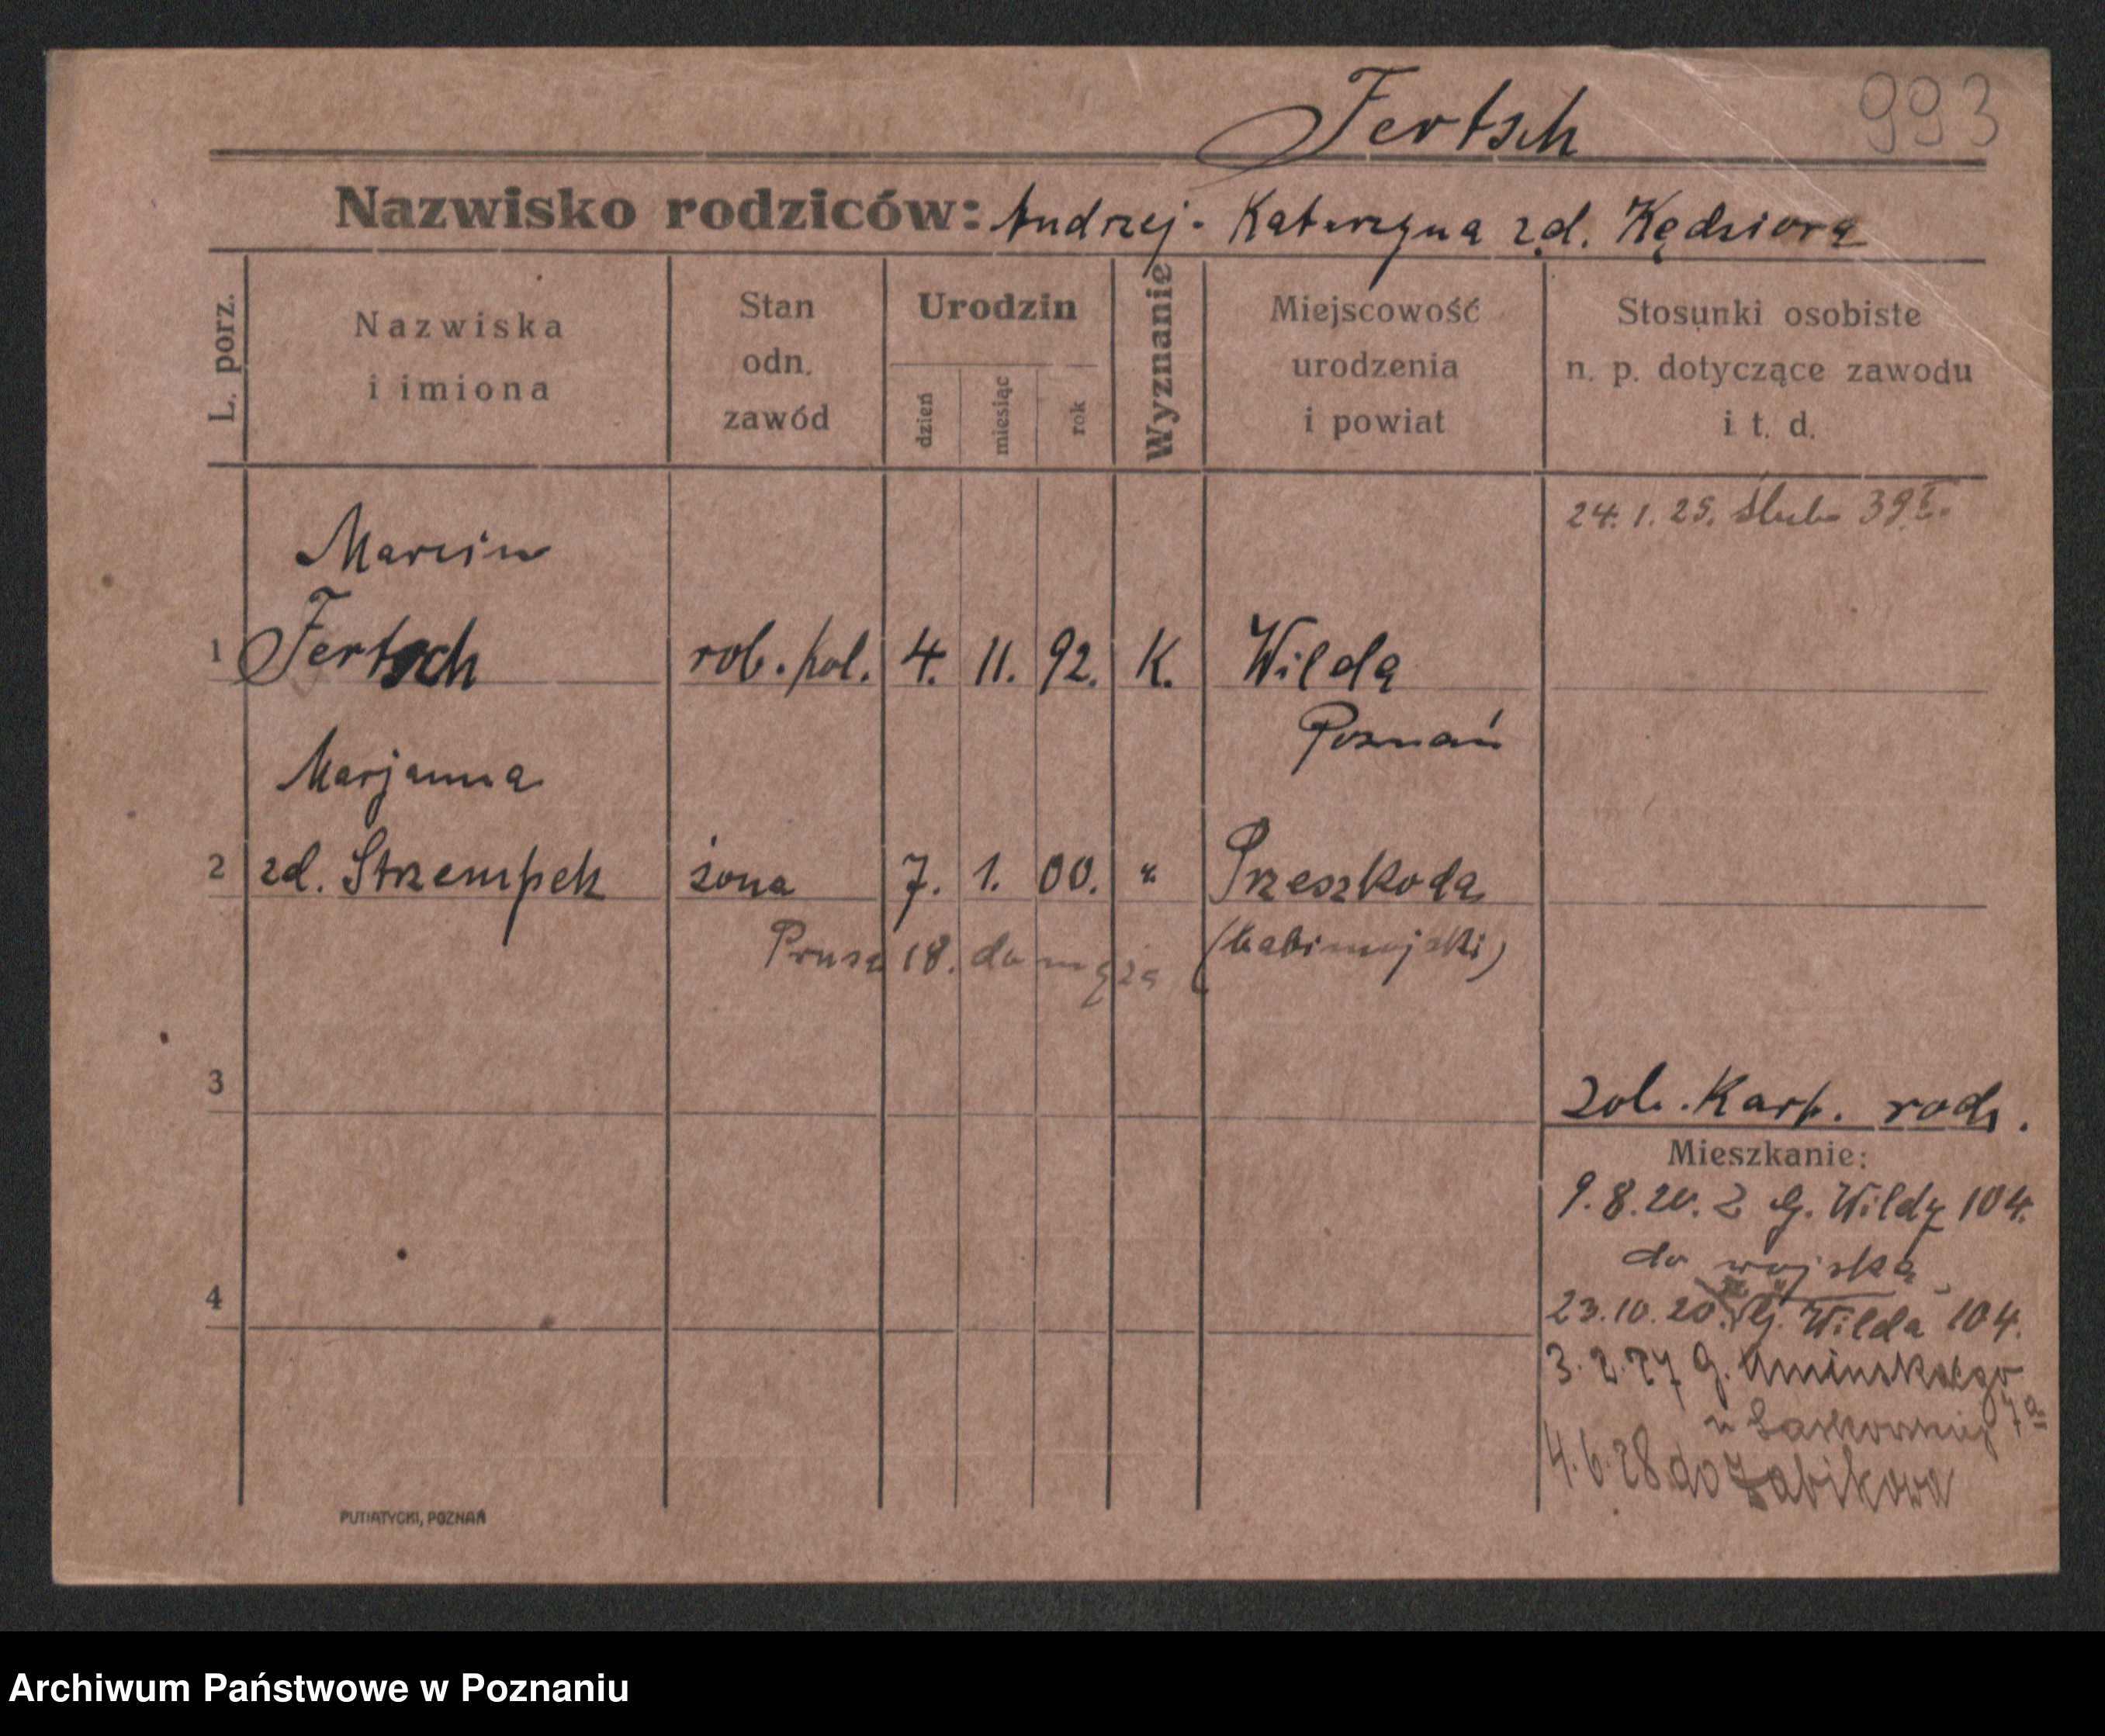 Fertsch 993
Nazwisko rodziców: Andrzej - Katarzyna zd. Kędziora
L. porz.
Nazwiska
i imiona
Stan
odn.
zawód
Urodzin
dzień
miesiąc
rok
Wyznanie
Miejscowość
urodzenia
i powiat
Stosunki osobiste
n. p. dotyczące zawodu
i t. d.
24.1.25. ślub
Marcin
1 Fertsch rob. kol. 4. 11. 92. K. Wilda
Poznań
Marjanna
2 zd. Strempek żona 7. 1. 00. " Przeszkoda
Prusa 18. do męża (babimojski)
3
zob. Kart. rodz.
Mieszkanie:
9.8.20. z G. Wildy 104.
do wojska
4
23.10.20. G. Wilda 104.
3.2.27 G. Umińskiego 7a
u
4.6.28 do Żabikowa
PUTIATYCKI, POZNAŃ
Archiwum Państwowe w Poznaniu